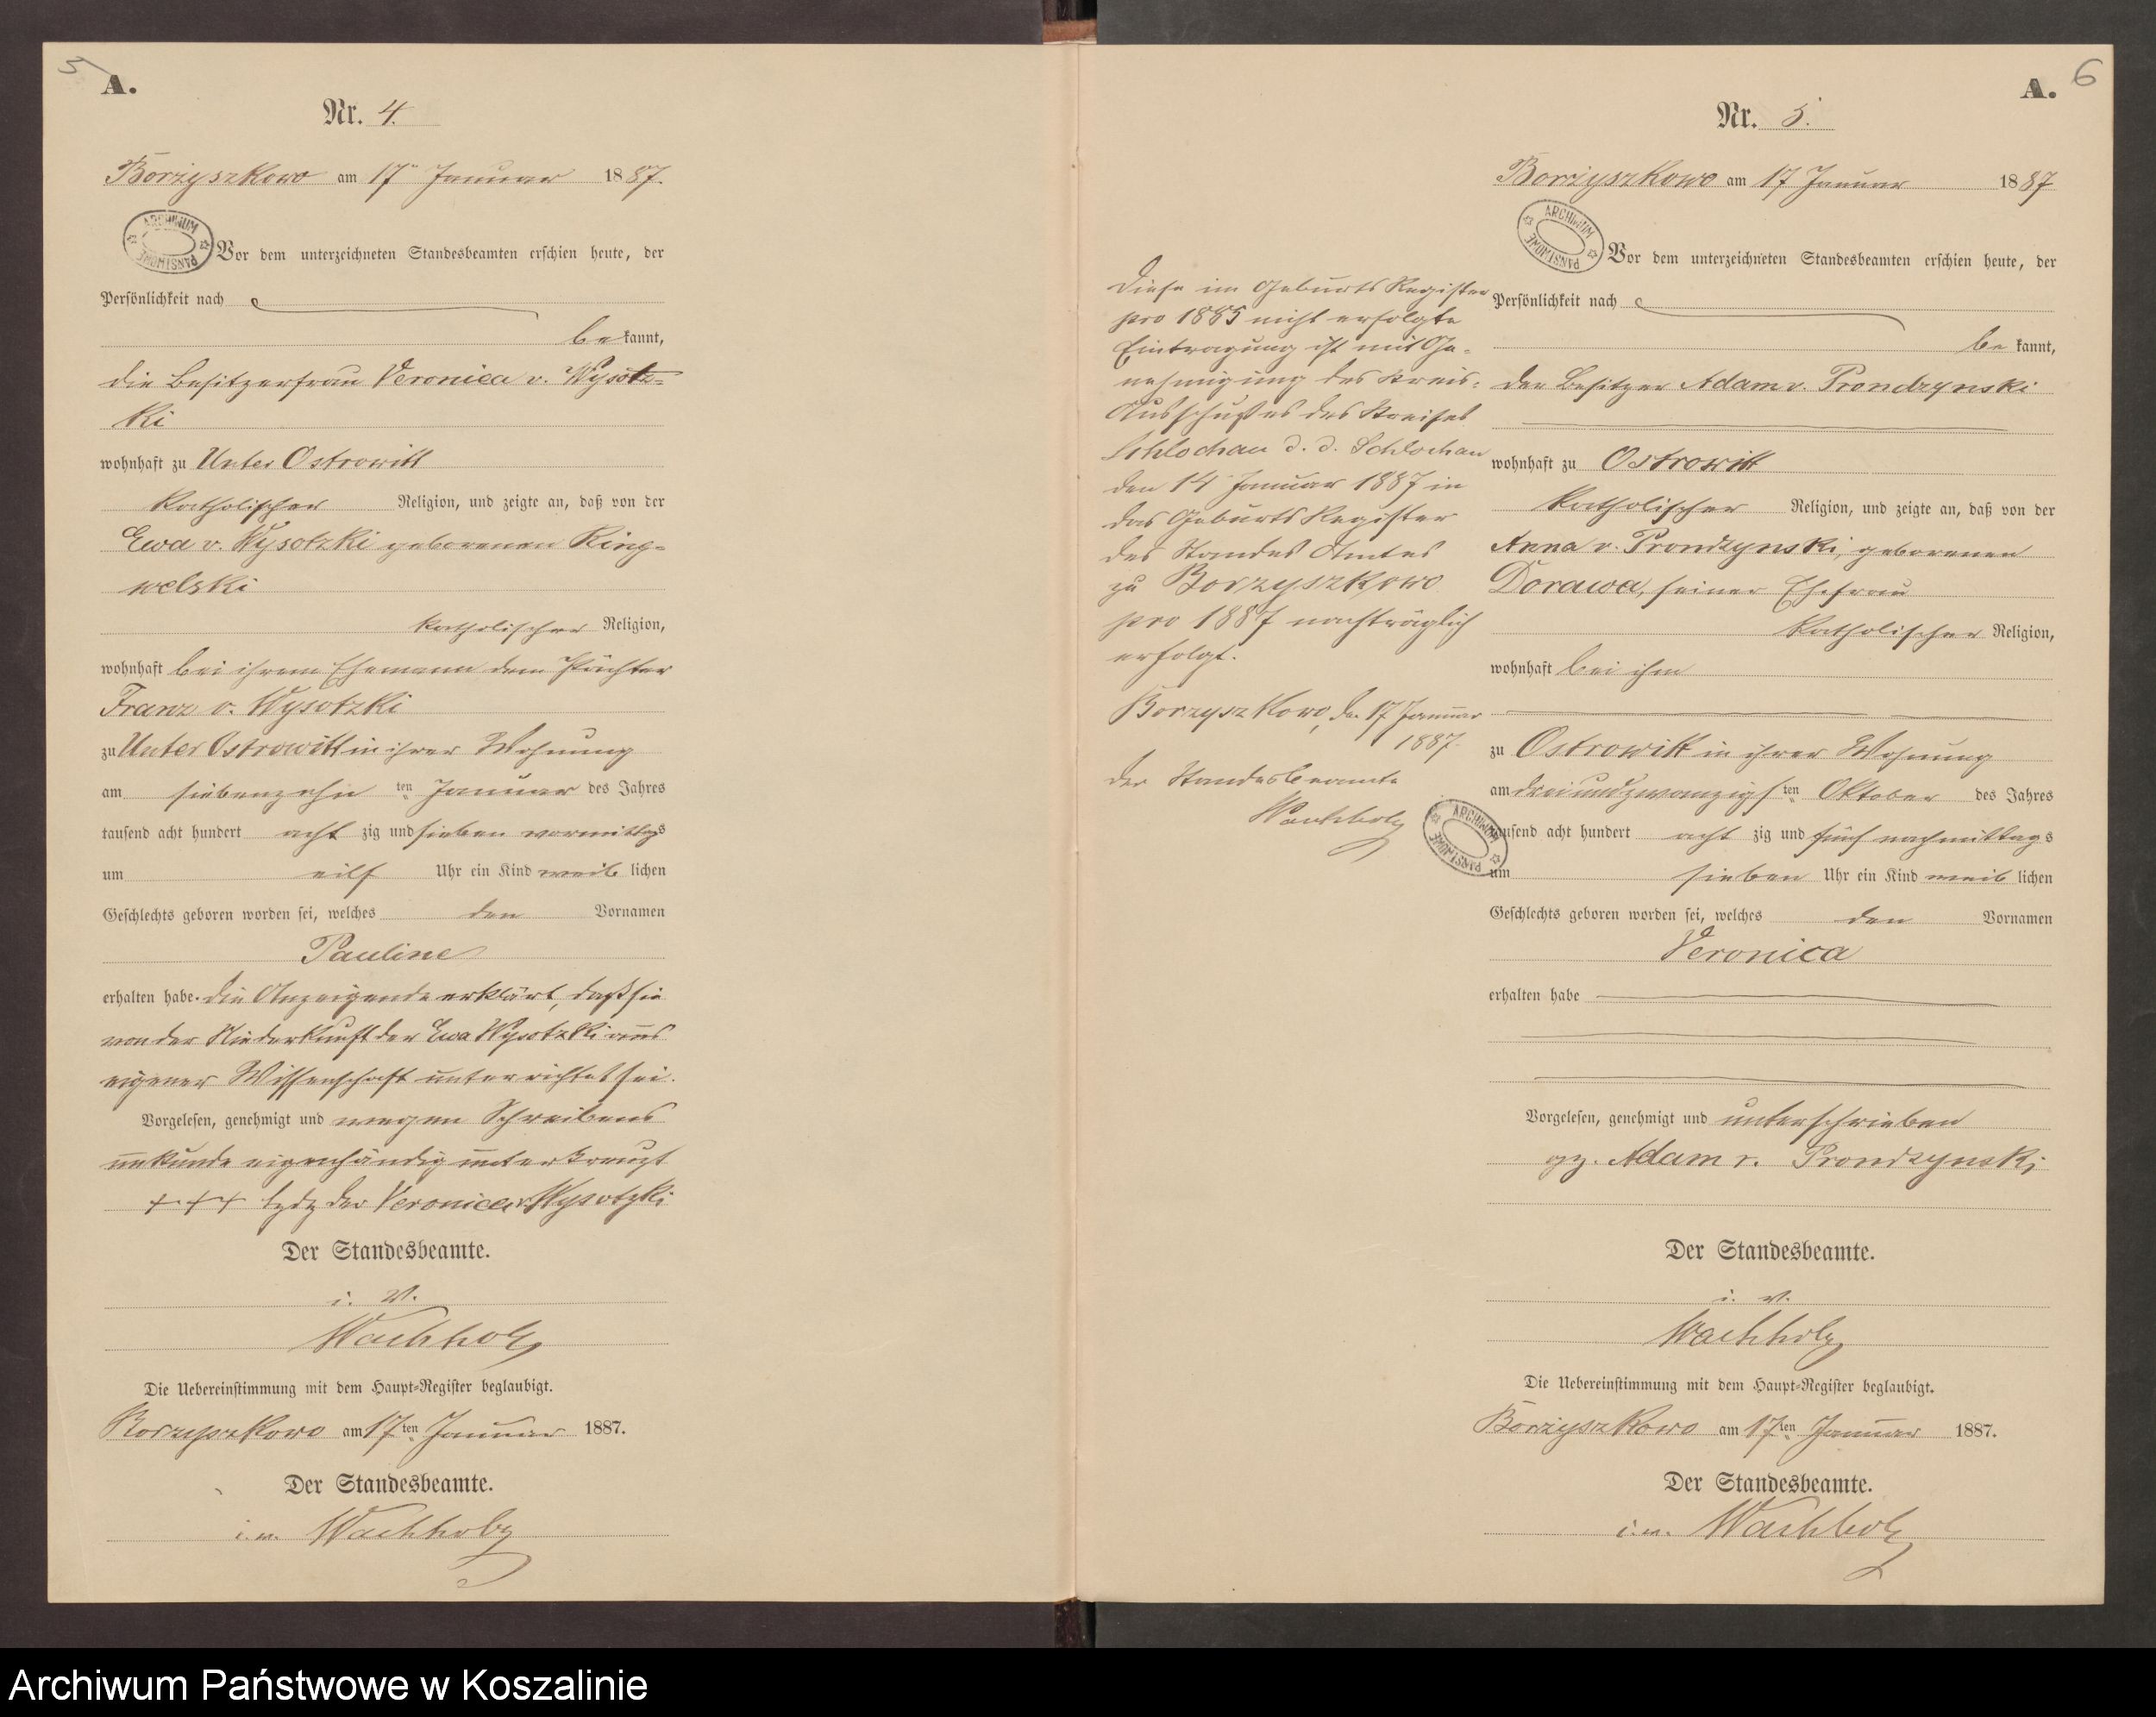 5
A.
Nr. 4.
Borzyszkowo am 17ten Januar 1887.
ARCHIWUM PAŃSTWOWE
Vor dem unterzeichneten Standesbeamten erschien heute, der
Persönlichkeit nach
be kannt,
die Besitzerfrau Veronica v. Wysotz-
ki
wohnhaft zu Unter Ostrowitt
katholischer Religion, und zeigte an, daß von der
Ewa v. Wysotzki geborenen Ring-
welski
katholischer Religion,
wohnhaft bei ihrem Ehemann dem Pächter
Franz v. Wysotzki
zu Unter Ostrowitt in ihrer Wohnung
am siebenzehn ten Januar des Jahres
tausend acht hundert acht zig und sieben vormittags
um eilf Uhr ein Kind weib lichen
Geschlechts geboren worden sei, welches den Vornamen
Pauline
erhalten habe. Die Anzeigende erklärt, daß sie
von der Niederkunft der Ewa Wysotzki aus
eigener Wissenschaft unterrichtet sei.
Vorgelesen, genehmigt und wegen Schreibens
unkunde eigenhändig unterkreuzt
+++ der Veronica v. Wysotzki
Der Standesbeamte.
i. V.
Wachholz
Die Uebereinstimmung mit dem Haupt=Register beglaubigt.
Borzyszkowo am 17ten Januar 1887.
Der Standesbeamte.
i. v. Wachholz
6
A.
Nr. 5.
Borzyszkowo am 17 Januar 1887
ARCHIWUM PAŃSTWOWE
Vor dem unterzeichneten Standesbeamten erschien heute, der
Persönlichkeit nach
be kannt,
der Besitzer Adam v. Prondzynski
wohnhaft zu Ostrowitt
katholischer Religion, und zeigte an, daß von der
Anna v. Prondzynski, geborenen
Dorawa, seiner Ehefrau
katholischer Religion,
wohnhaft bei ihm
zu Ostrowitt in ihrer Wohnung
am dreiundzwanzigs ten Oktober des Jahres
tausend acht hundert acht zig und fünf nachmittags
um sieben Uhr ein Kind weib lichen
Geschlechts geboren worden sei, welches den Vornamen
Veronica
erhalten habe
Vorgelesen, genehmigt und unterschrieben
gz. Adam v. Prondzynski
Der Standesbeamte.
i. V.
Wachholz
Die Uebereinstimmung mit dem Haupt=Register beglaubigt.
Borzyszkowo am 17ten Januar 1887.
Der Standesbeamte.
i. v. Wachholz
Diese im Geburts Register
pro 1885 nicht erfolgte
Eintragung ist mit Ge-
nehmigung des Kreis-
Ausschußes des Kreises
Schlochau d. d. Schlochau
den 14 Januar 1887 in
das Geburts Register
des Standes Amtes
zu Borzyszkowo
pro 1887 nachträglich
erfolgt.
Borzyszkowo, den 17 Januar
1887.
Der Standesbeamte
Wachholz
ARCHIWUM PAŃSTWOWE
Archiwum Państwowe w Koszalinie